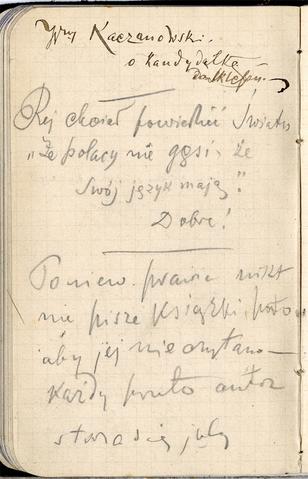 Kaczanowski.
o kandydatkę
Rej chciał powiedzieć Światu
"Że polacy nie gęsi, że
Swój język mają".
Dobrze!
Poniew. prawie nikt
nie pisze Książki, poto
aby jej nie czytano —
Każdy przeto autor
stara się, jeby